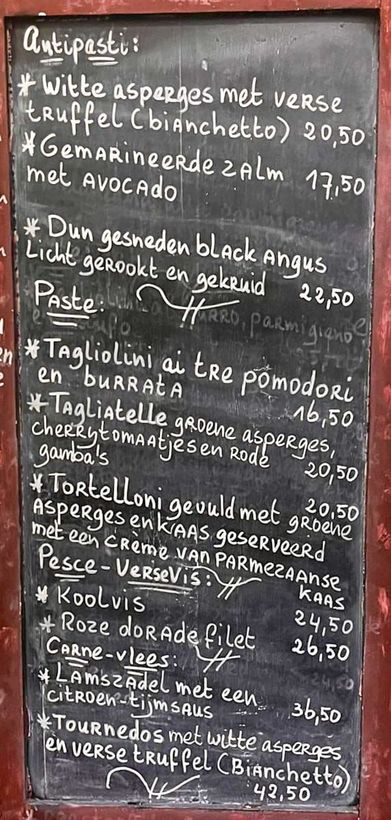 Antipasti:
* Witte asperges met verse
truffel (bianchetto) 20,50
* Gemarineerde zalm 17,50
met avocado
* Dun gesneden black angus
Licht gerookt en gekruid 22,50
Paste:
* Tagliolini ai tre pomodori
en burrata 16,50
* Tagliatelle groene asperges,
cherrytomaatjes en rode 20,50
gamba's
* Tortelloni gevuld met groene 20,50
asperges en kaas geserveerd
met een crème van parmezaanse
kaas
Pesce - Verse vis:
* Koolvis 24,50
* Roze dorade filet 26,50
Carne - vlees:
* Lamszadel met een 36,50
citroen-tijmsaus
* Tournedos met witte asperges
en verse truffel (Bianchetto)
42,50